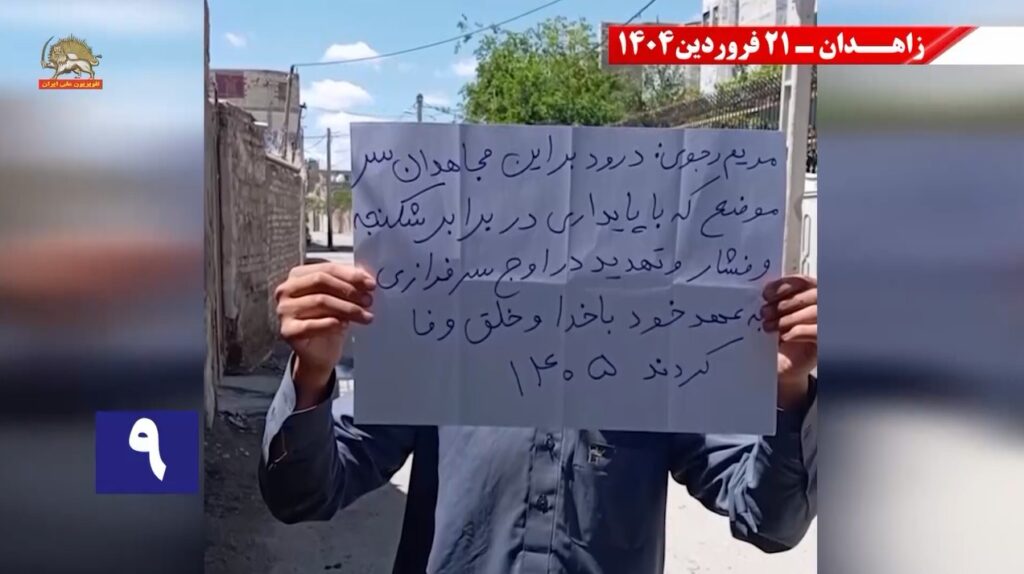 زاهـدان ــ ۲۱ فروردین۱۴۰۴
تلویزیون ملی ایران
مریم رجوی: درود بر این مجاهدان سر
موضع که با پایداری در برابر شکنجه
و فشار و تهدید در اوج سرفرازی
به عهد خود با خدا و خلق وفا
کردند ۱۴۰۵
۹